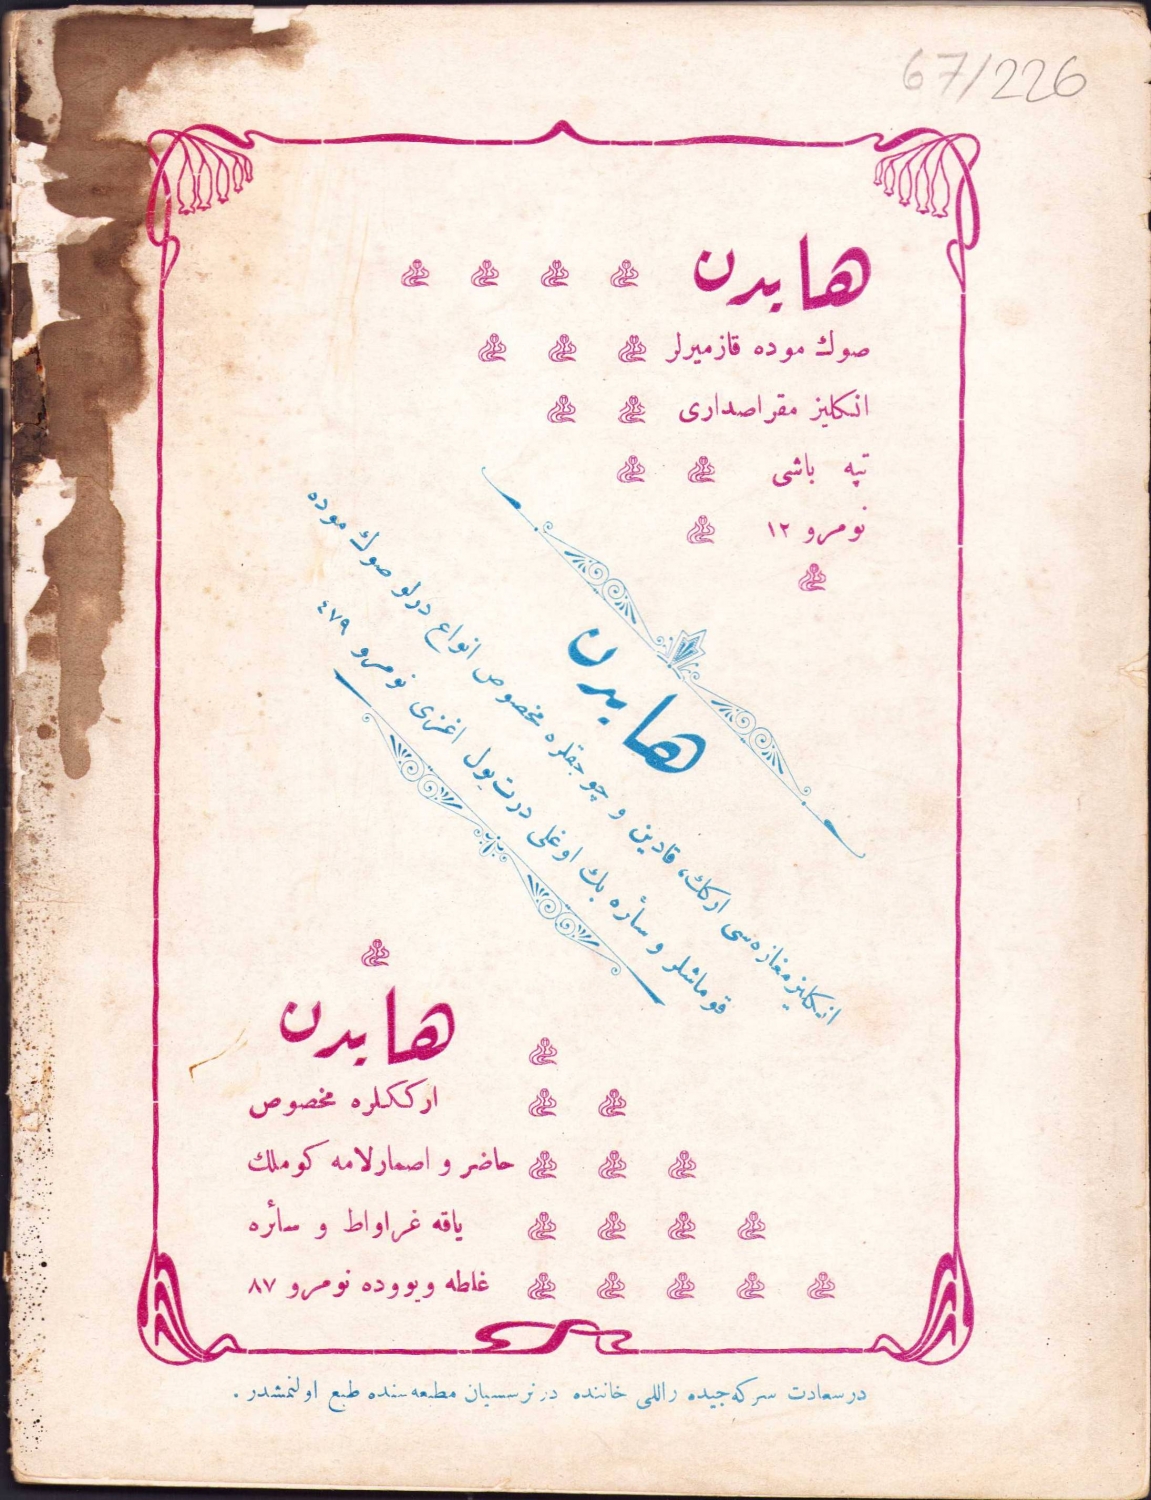 67/226
هایدن
صوڭ موده قازمیرلر
انكلیز مقراصداری
تپه باشی
نومرو ١٢
هایدن
انكلیز مغازه‌سی اركك، قادین و چوجقلره مخصوص انواع درلو صوڭ موده
قوماشلر و سأره بك اوغلی درت یول اغزی نومرو ٤٧٩
هایدن
ارككلره مخصوص
حاضر و اصمارلامه كوملك
یاقه غراواط و سأره
غلطه ویووده نومرو ٨٧
درسعادت سركه‌جیده راللی خاننده درنرسسیان مطبعه‌سنده طبع اولنمشدر .